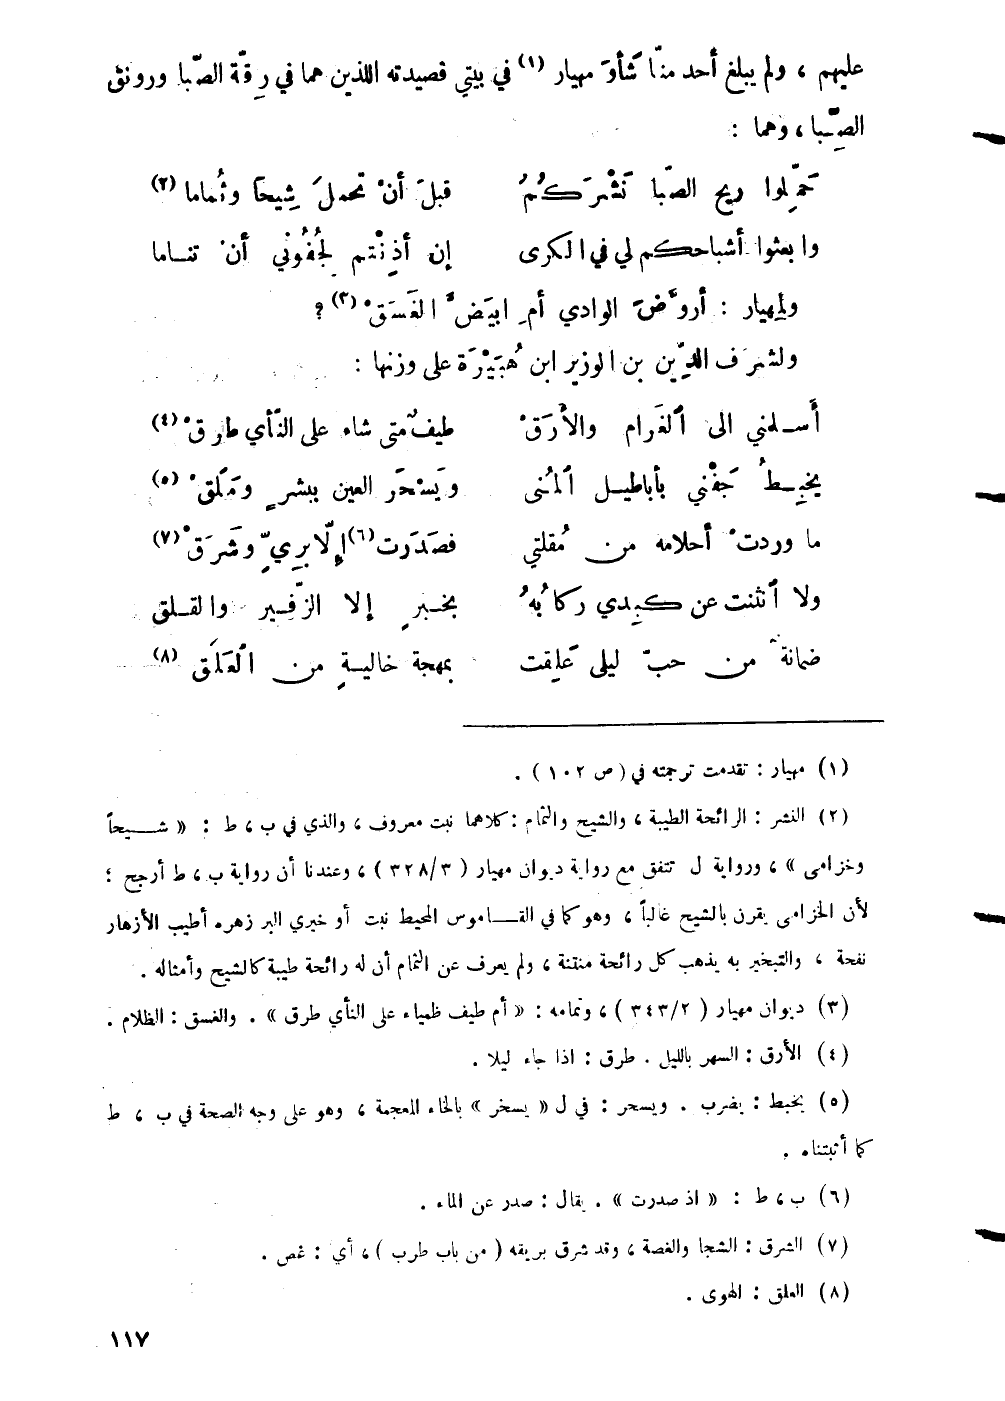 عليهم ، ولم يبلغ أحد منّا شأوَ مهيار (١) في بيتي قصيدته اللذين هما في رِقّة الصَّبا ورونق
الصِّبا ، وهما :
حَمِّلوا ريح الصَّبا نَشْرَكُمُ قبلَ أنْ تحملَ شِيحاً وثُماما (٢)
وابعثوا أشباحكم لي في الكرى إن أذِنْتم لجُفُوني أنْ تناما
ولمهيار : أروَّضَ الوادي أمِ ابيَضَّ الغَسَقْ (٣) ؟
ولشرَف الدِّين بن الوزير ابن هُبَيْرَة على وزنها :
أَسلمني الى ٱلغَرام والأَرَقْ طيفٌ متى شاء على النَّأي طارقْ (٤)
يخبِطُ جَفْني بأباطيل ٱلمُنى ويَسْحَر العين ببشرٍ ومَلَقْ (٥)
ما وردتْ أحلامه من مُقلتي فصَدَرت (٦) إلّا برِيٍّ وشَرَقْ (٧)
ولا ٱنثنت عن كبِدي ركابُهُ بخبرٍ إلا الزَّفير والقلق
ضمانة من حبّ ليلى عَلِقت بمهجة خاليةٍ من ٱلعَلَق (٨)
(١) مهيار : تقدمت ترجمته في ( ص ١٠٢ ) .
(٢) النشر : الرائحة الطيبة ، والشيح والثمام : كلاهما نبت معروف ، والذي في ب ، ط : « شيحاً
وخزامى » ، ورواية ل تتفق مع رواية ديوان مهيار ( ٣٢٨/٣ ) ، وعندنا أن رواية ب ، ط أرجح ؛
لأن الخزامى يقرن بالشيح غالباً ، وهو كما في القاموس المحيط نبت أو خيري البر زهره أطيب الأزهار
نفحة ، والتبخير به يذهب كل رائحة منتنة ، ولم يعرف عن الثمام أن له رائحة طيبة كالشيح وأمثاله .
(٣) ديوان مهيار ( ٣٤٣/٢ ) ، وتمامه : « أم طيف ظمياء على النأي طرق » . والغسق : الظلام .
(٤) الأرق : السهر بالليل . طرق : اذا جاء ليلا .
(٥) يخبط : يضرب . ويسحر : في ل « يسخر » بالخاء المعجمة ، وهو على وجه الصحة في ب ، ط
كما أثبتناه .
(٦) ب ، ط : « اذ صدرت » . يقال : صدر عن الماء .
(٧) الشرق : الشجا والغصة ، وقد شرق بريقه ( من باب طرب ) ، أي : غص .
(٨) العلق : الهوى .
١١٧